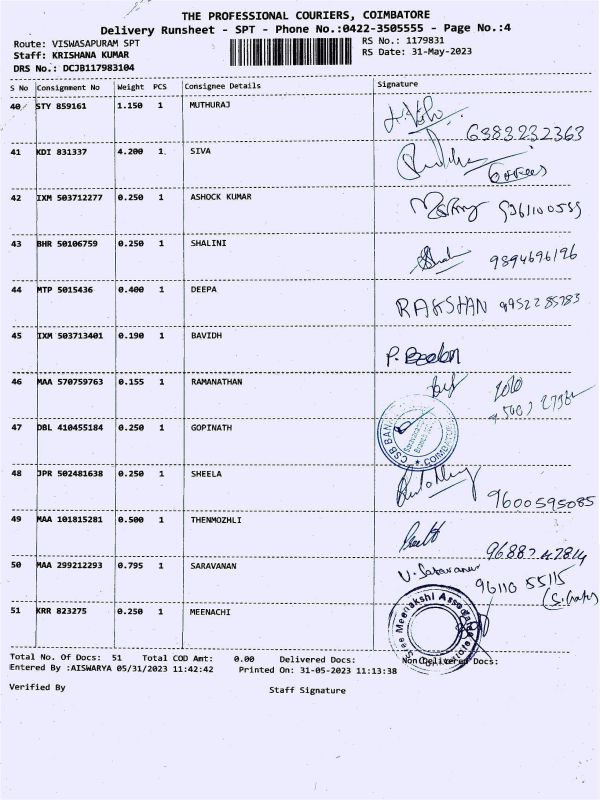 THE PROFESSIONAL COURIERS, COIMBATORE
Delivery Runsheet - SPT - Phone No.:0422-3505555 - Page No.:4
Route: VISWASAPURAM SPT
RS No.: 1179831
Staff: KRISHANA KUMAR
RS Date: 31-May-2023
DRS No.: DCJB117983104
S No Consignment No Weight PCS Consignee Details Signature
40 STY 859161 1.150 1 MUTHURAJ
6383232363
41 KDI 831337 4.200 1 SIVA
42 IXM 503712277 0.250 1 ASHOCK KUMAR
43 BHR 50106759 0.250 1 SHALINI 9894696196
44 MTP 5015436 0.400 1 DEEPA RAKSHAN 9952285783
45 IXM 503713401 0.190 1 BAVIDH
46 MAA 570759763 0.155 1 RAMANATHAN
47 DBL 410455184 0.250 1 GOPINATH CSB BANK COIMBATORE
48 JPR 502481638 0.250 1 SHEELA
9600595085
49 MAA 101815281 0.500 1 THENMOZHLI
50 MAA 299212293 0.795 1 SARAVANAN V. Saravanan
96110 55115
51 KRR 823275 0.250 1 MEENACHI Sree Meenakshi Associates
Total No. Of Docs: 51 Total COD Amt: 0.00 Delivered Docs: Non Delivered Docs:
Entered By :AISWARYA 05/31/2023 11:42:42 Printed On: 31-05-2023 11:13:38
Verified By Staff Signature